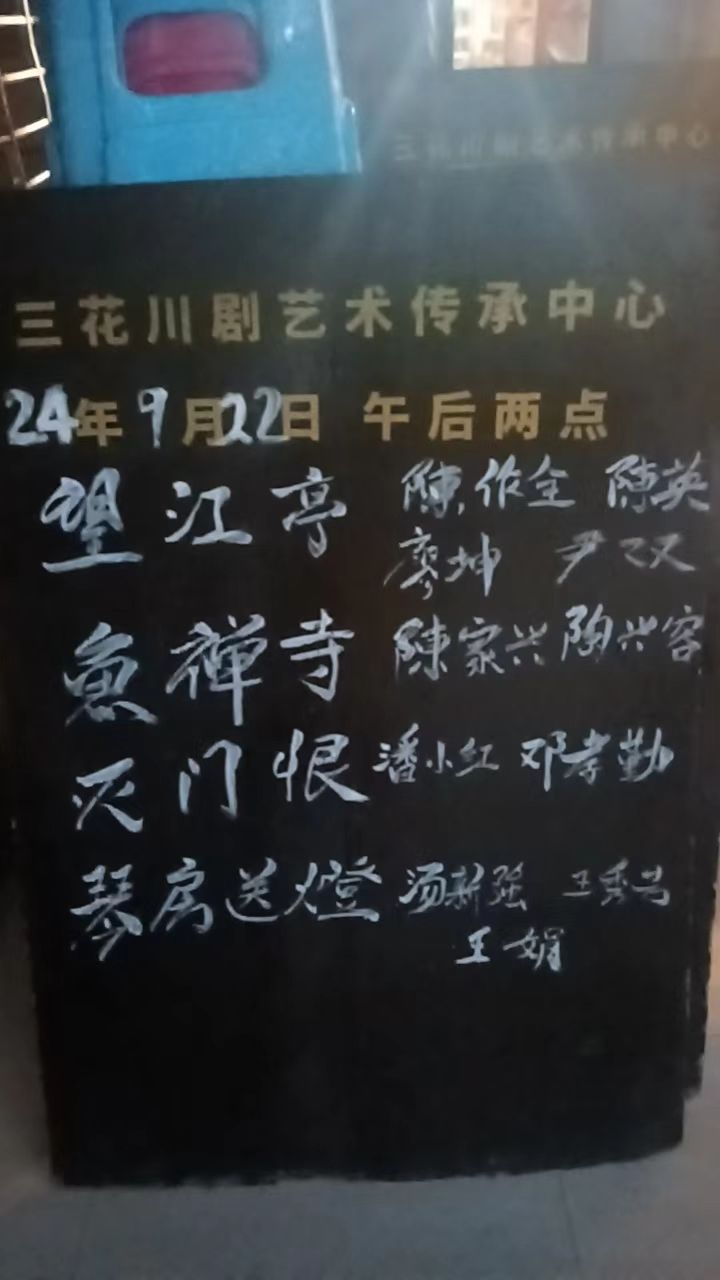 三花川剧艺术传承中心
三花川剧艺术传承中心
24年9月22日 午后两点
望江亭 陳作全 陳英
廖坤 尹又又
鱼禅寺 陳家兴 陶兴容
灭门恨 潘小红 邓孝勤
琴房送燈 汤新强 王秀
王娟